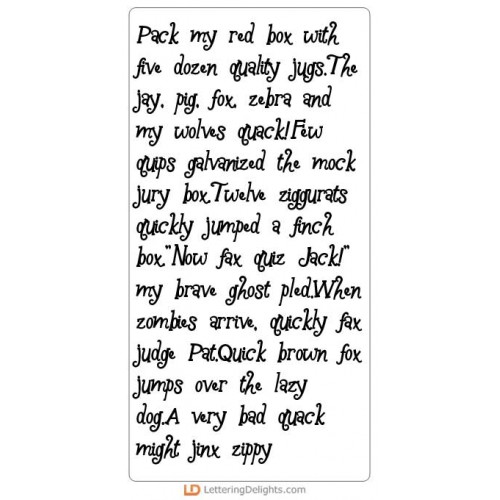 Pack my red box with
five dozen quality jugs.The
jay, pig, fox, zebra and
my wolves quack!Few
quips galvanized the mock
jury box.Twelve ziggurats
quickly jumped a finch
box."Now fax quiz Jack!"
my brave ghost pled.When
zombies arrive, quickly fax
judge Pat.Quick brown fox
jumps over the lazy
dog.A very bad quack
might jinx zippy
LD LetteringDelights.com